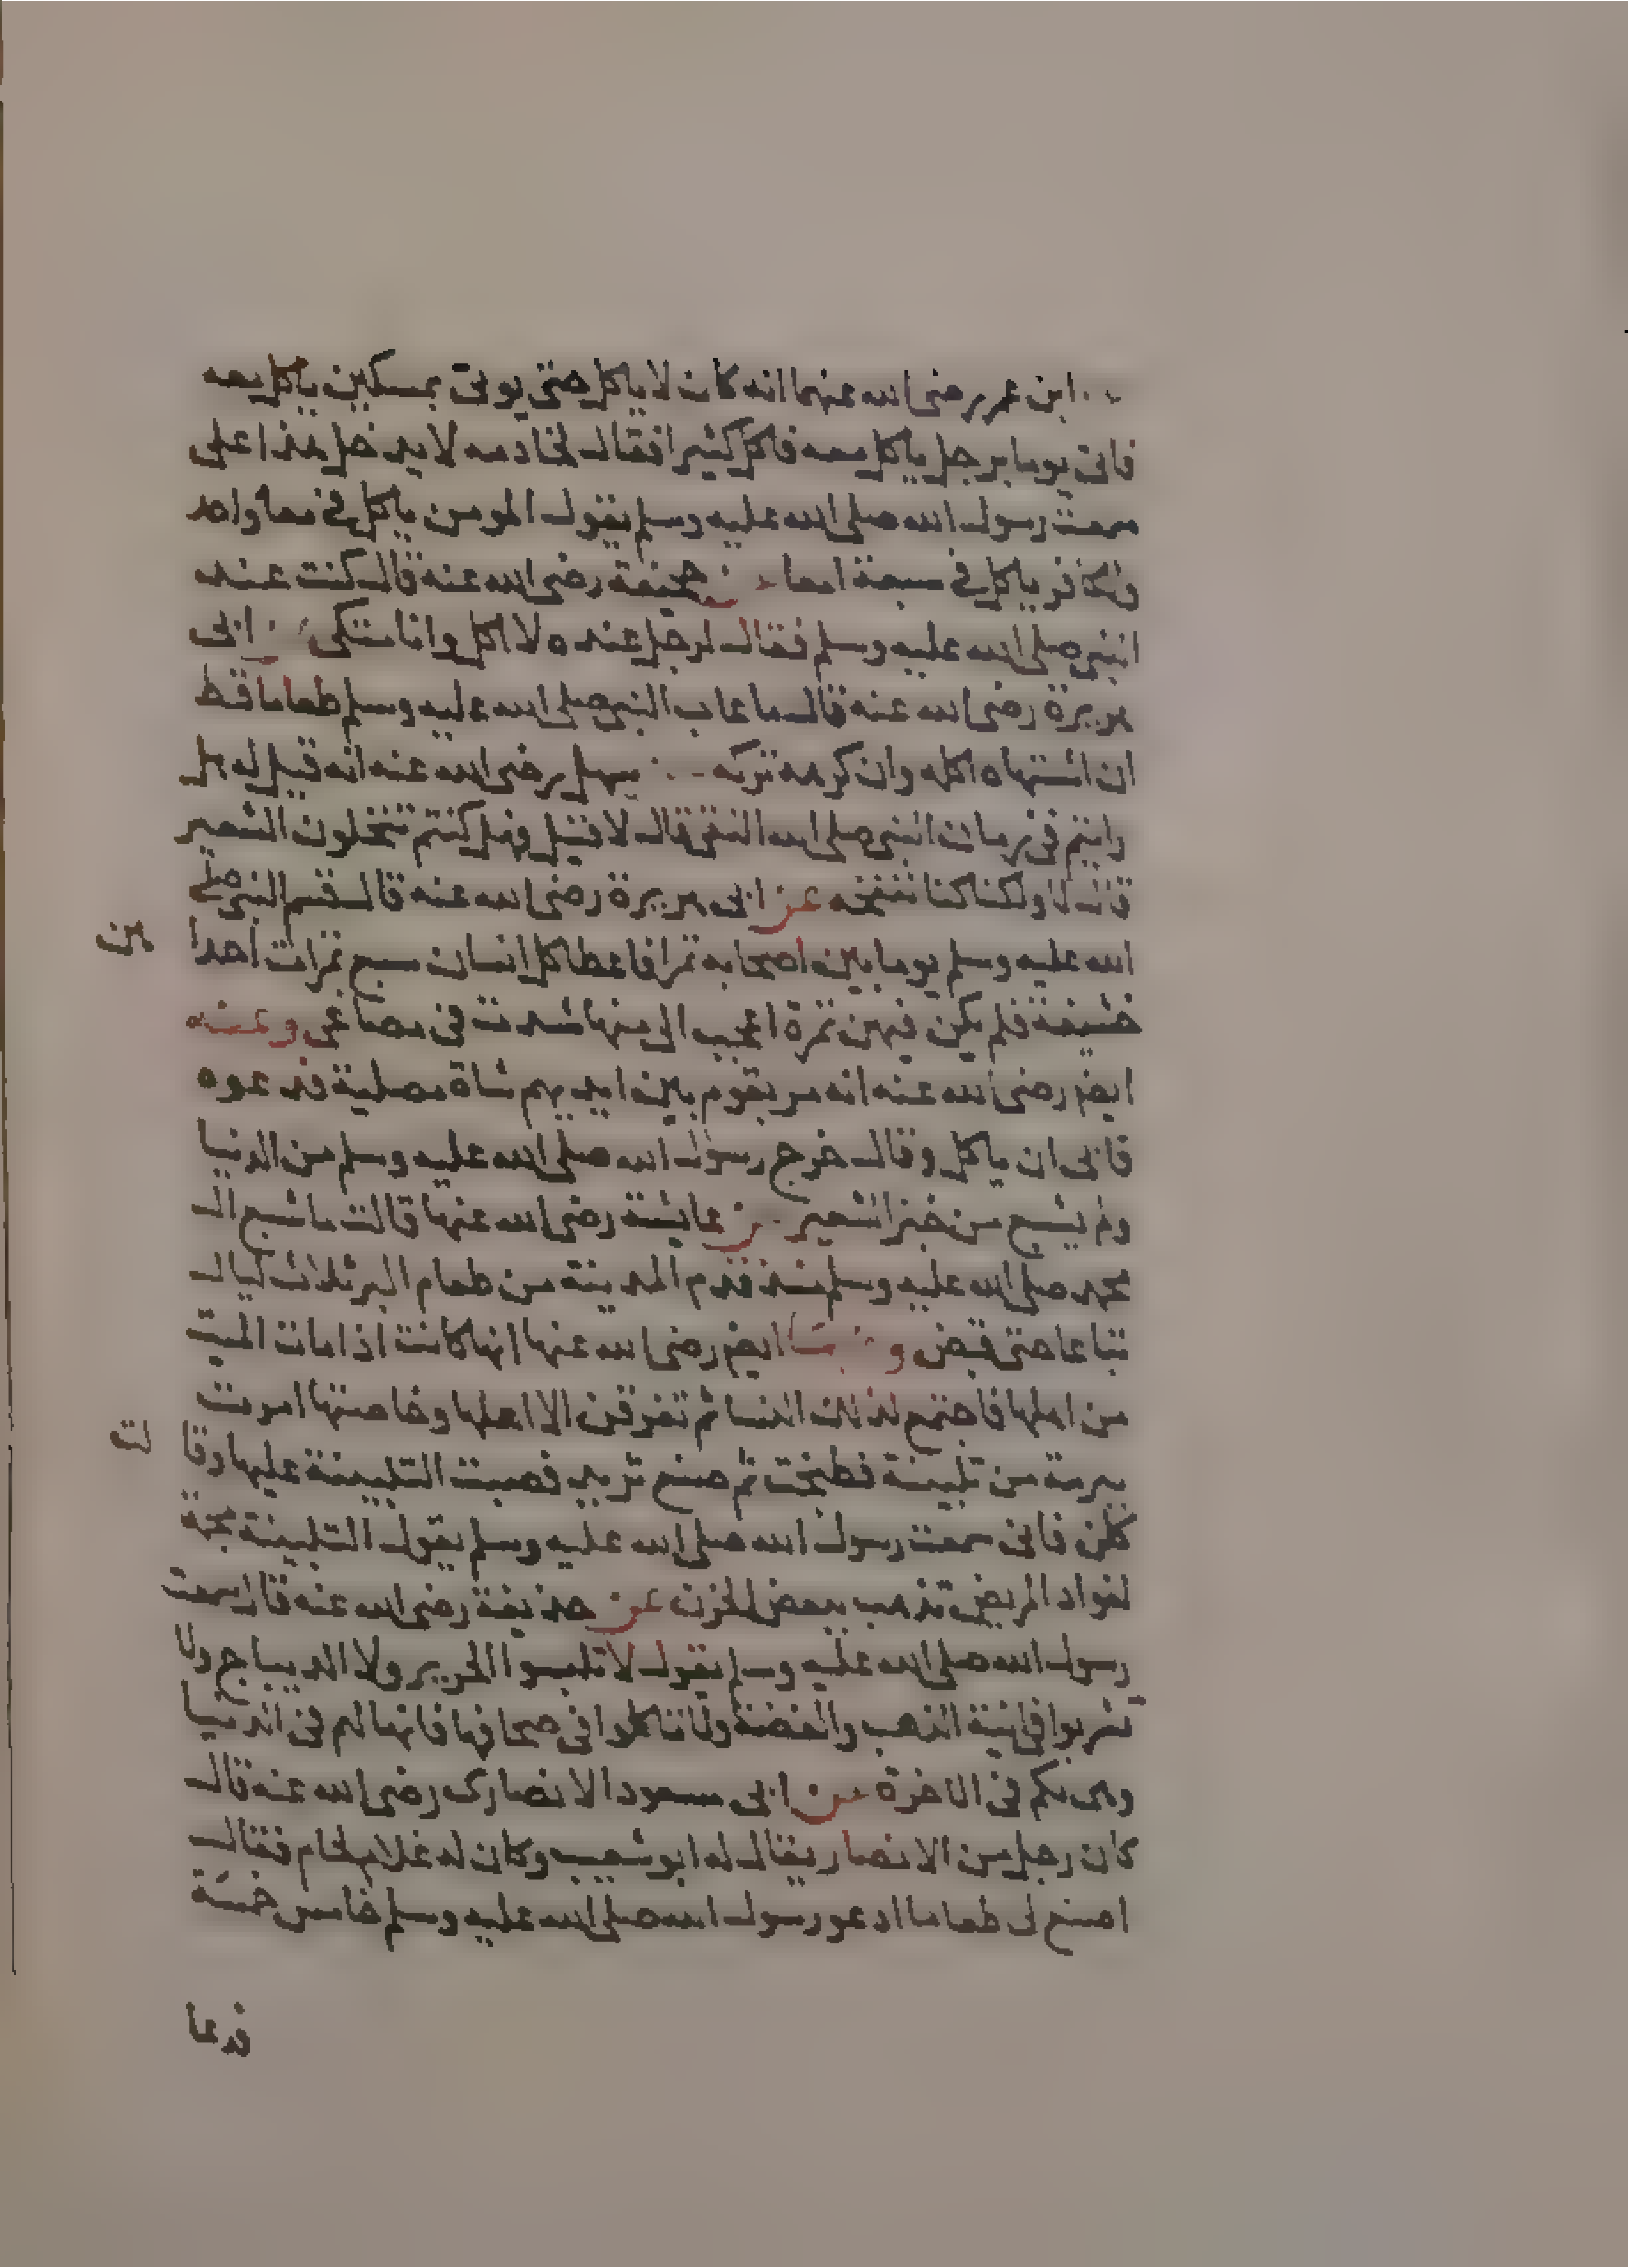 عن ابن عمر رضى الله عنهما انه كان لا ياكل حتى يوتى بمسكين ياكل معه
فاتى يوما برجل ياكل معه فاكل كثيرا فقال لخادمه لا يدخل هذا على
سمعت رسول الله صلى الله عليه وسلم يقول المومن ياكل فى معا واحد
والكافر ياكل فى سبعة امعا عن جحيفة رضى الله عنه قال كنت عند
النبى صلى الله عليه وسلم فقال لرجل عنده لا اكل وانا متكى عن ابى
هريرة رضى الله عنه قال ما عاب النبى صلى الله عليه وسلم طعاما قط
ان اشتهاه اكله وان كرهه تركه عن سهل رضى الله عنه انه قيل له هل
رايتم فى زمان النبى صلى الله النقى قال لا قيل فهل كنتم تنخلون الشعير
قال لا ولكنا كنا ننفخه عن ابى هريرة رضى الله عنه قال قسم النبى صلى
الله عليه وسلم يوما بين اصحابه تمرا فاعطا كل انسان سبع تمرات احدا
هن
حشيفة فلم يكن فيهن تمرة اعجب الى منها شدت فى مضاغى وعنه
ايضا رضى الله عنه انه مر بقوم بين ايديهم شاة مصلية فدعوه
فابى ان ياكل وقال خرج رسول الله صلى الله عليه وسلم من الدنيا
ولم يشبع من خبز الشعير عن عايشة رضى الله عنها قالت ما شبع ال
محمد صلى الله عليه وسلم منذ قدم المدينة من طعام البر ثلاث ليال
تباعا حتى قبض وعنها ايضا رضى الله عنها انها كانت اذا مات الميت
من اهلها فاجتمع لذلك النسا ثم تفرقن الا اهلها وخاصتها امرت
ببرمة من تلبينة فطبخت ثم صنع ثريد فصبت التلبينة عليها وقا
لت
كلن فانى سمعت رسول الله صلى الله عليه وسلم يقول التلبينة مجمة
لفواد المريض تذهب ببعض الحزن عن حذيفة رضى الله عنه قال سمعت
رسول الله صلى الله عليه وسلم يقول لا تلبسوا الحرير ولا الديباج ولا
تشربوا فى انية الذهب والفضة ولا تاكلوا فى صحافها فانها لهم فى الدنيا
وهى لكم فى الاخرة عن ابى مسعود الانصارى رضى الله عنه قال
كان رجل من الانصار يقال له ابو شعيب وكان له غلام لحام فقال
اصنع لى طعاما ادعو رسول الله صلى الله عليه وسلم خامس خمسة
فدعا